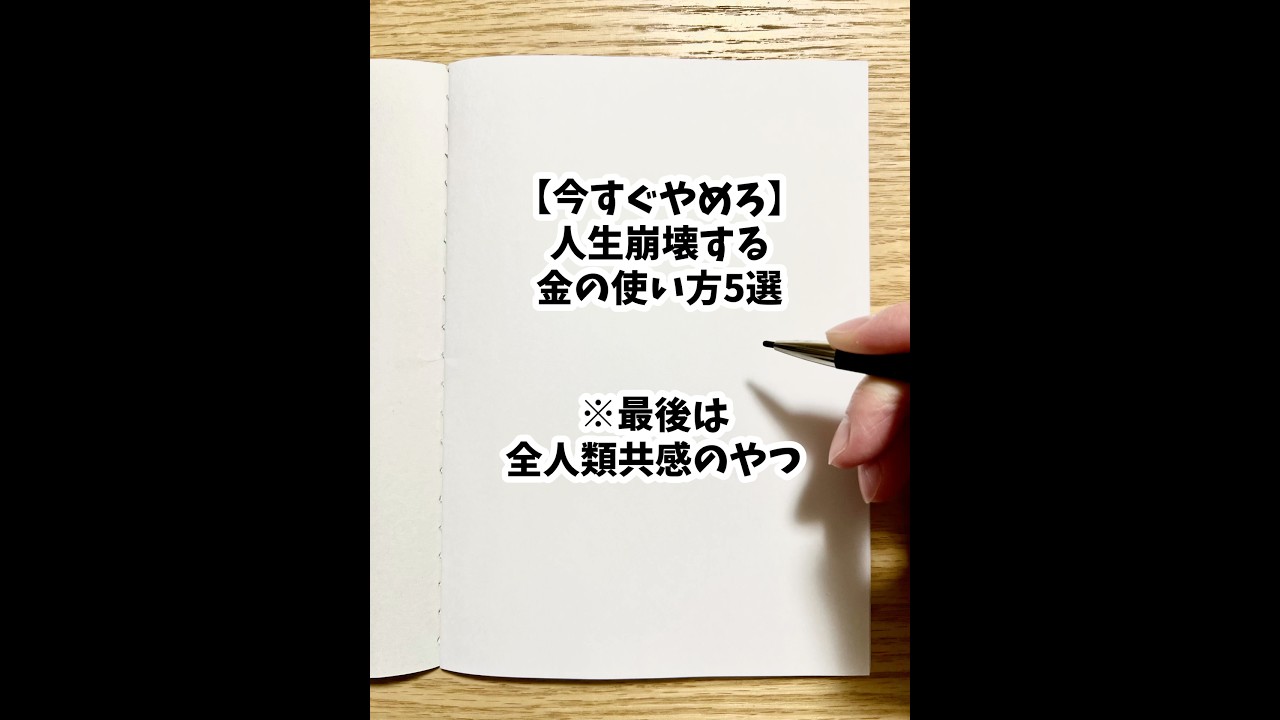 【今すぐやめろ】
人生崩壊する
金の使い方5選
※最後は
全人類共感のやつ